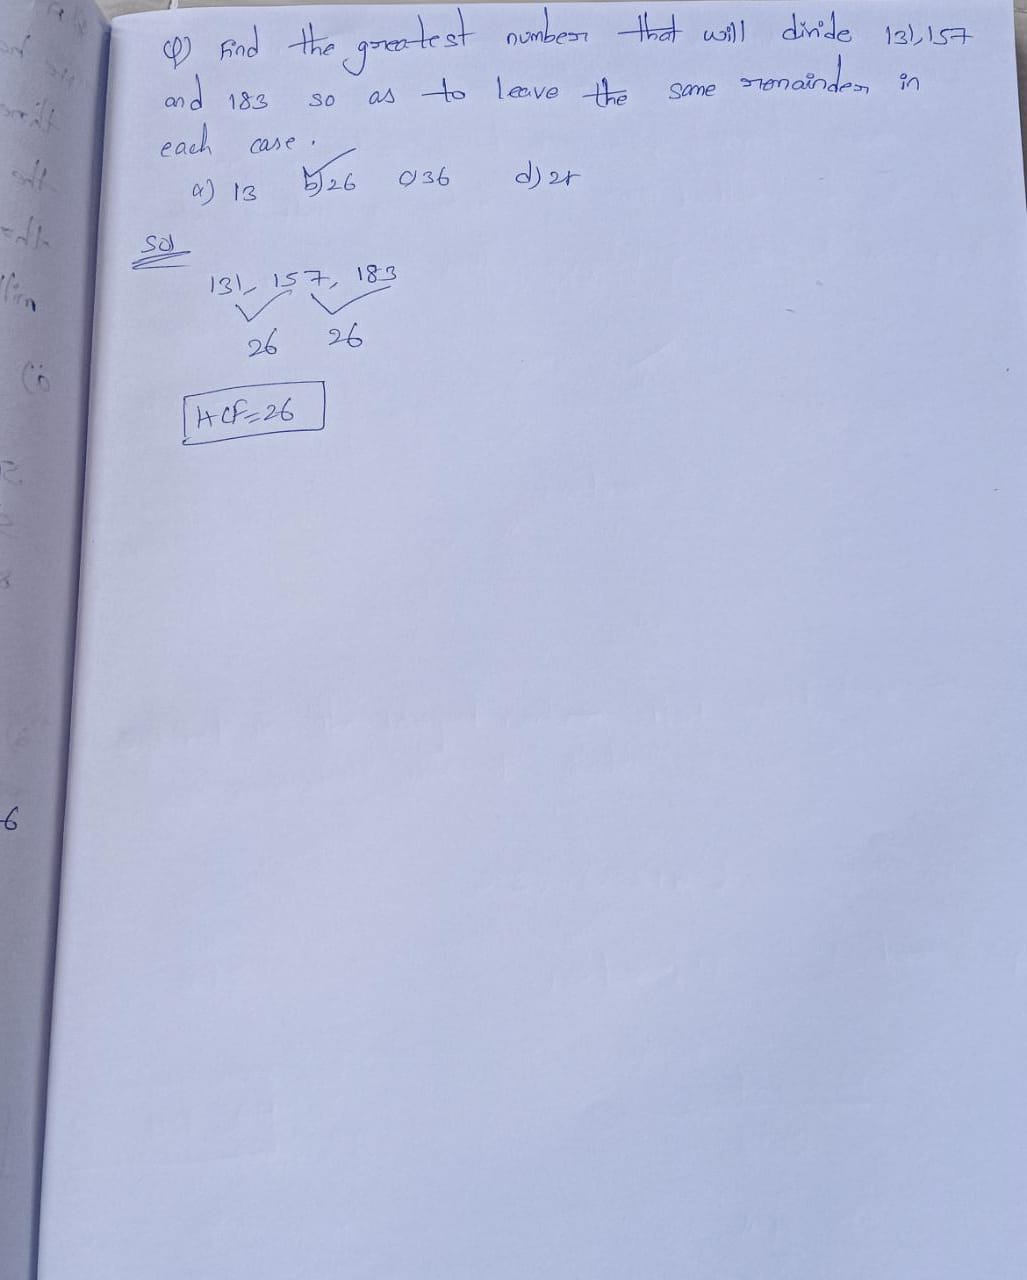 Q) Find the greatest number that will divide 131, 157
and 183 so as to leave the same remainder in
each case.
a) 13 b) 26 c) 36
Sol
131, 157, 183
26 26
HCF=26
6